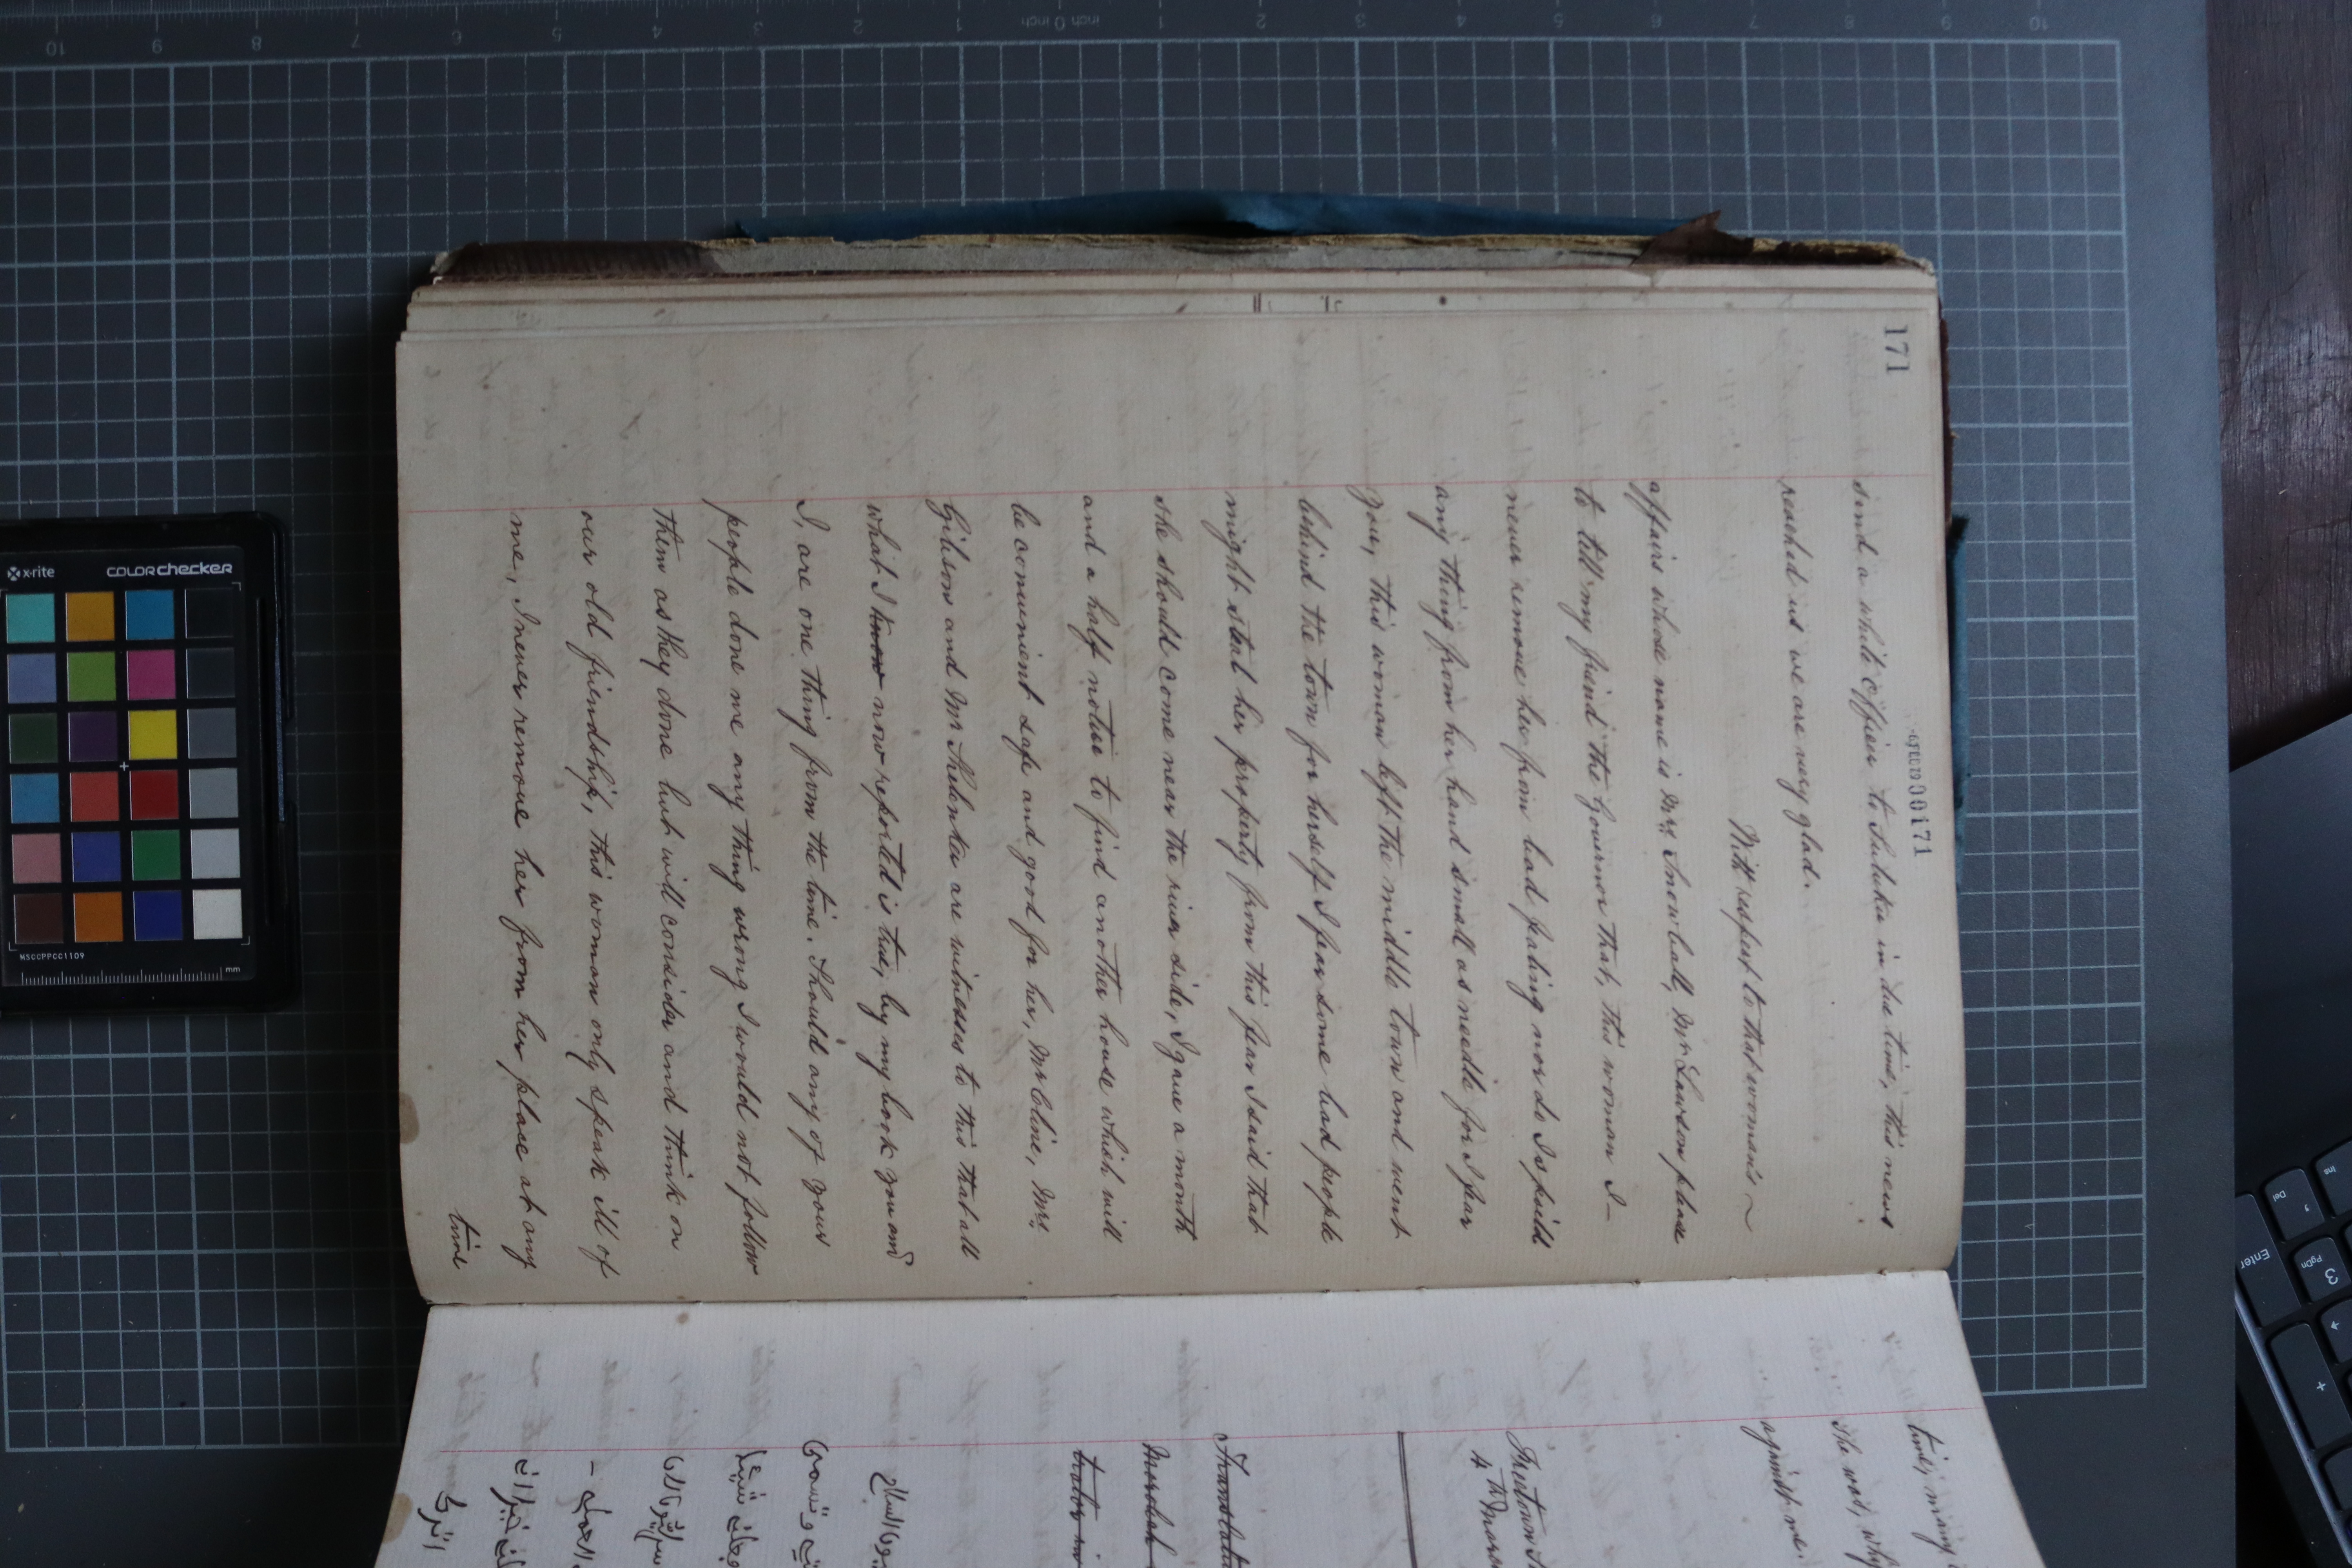 171
00171
send a white officer to Suluku in due time, this news
reached us we are very glad.
With respect to that woman's ~
affairs whose name is Mrs Snowball, Mr Lawson please
to tell my friend the Governor that, this woman I –
never remove her from bad feeling nor do I spoild
any thing from her hand small as needle for I fear
you, this woman left the middle town and went
behind the town for herself I fear some bad people
might steal her property from this fear I said that
she should come near the river side, I gave a month
and a half notice to find another house which will
be convenient safe and good for her, Mr Cline, Mrs
Gibson and Mr Thilonka are witnesses to this that all
what I know now reported is true, by my book you and
I, are one thing from the time. Should any of your
people done me any thing wrong I would not follow
them as they done but will consider and think on
our old friendship, this woman only speak ill of
me, I never remove her from her place at any
time
time, many
She was, why
against me.
Freetown
4th
Translat
x-rite
colorchecker
MSCCPPCC1109
mm
10 9 8 7 6 5 4 3 2 1 inch 0 inch 1 2 3 4 5 6 7 8 9 10
Enter
Del
Ins
3
PgDn
+